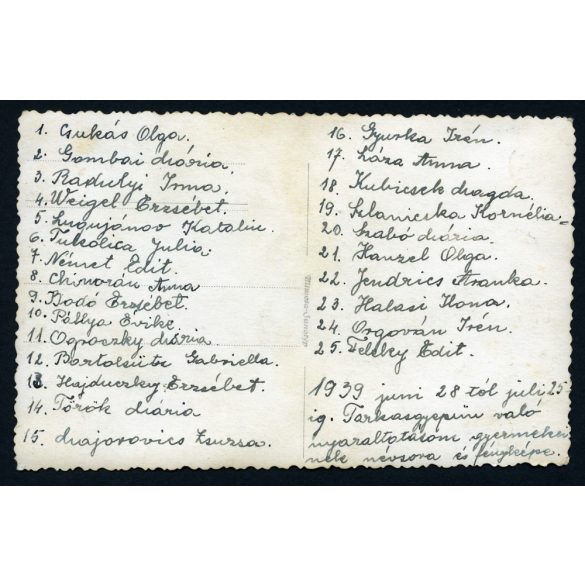 1. Csukás Olga.
2. Gombai Mária.
3. Radulyi Irma.
4. Weigel Erzsébet.
5. Lugujánov Katalin.
6. Tukolica Julia.
7. Német Edit.
8. Chinorán Anna
9. Bodó Erzsébet.
10. Pállya Evike.
11. Ogroczky Mária
12. Gabriella.
13. Hajduczky Erzsébet.
14. Török Mária
15. Majorovics Zsuzsa.
16. Gyurka Irén.
17. Láza Anna
18. Kubicsek Magda.
19. Szlaniczka Kornélia
20. Szabó Mária.
21. Hanzel Olga.
22. Jendrics Aranka.
23. Halasi Ilona.
24. Orgován Irén.
25. Edit.
1939 juni 28 tól juli 25
ig. Farkasgyepün való
nyaraltatásom gyermekei
nek névsora és fényképe.